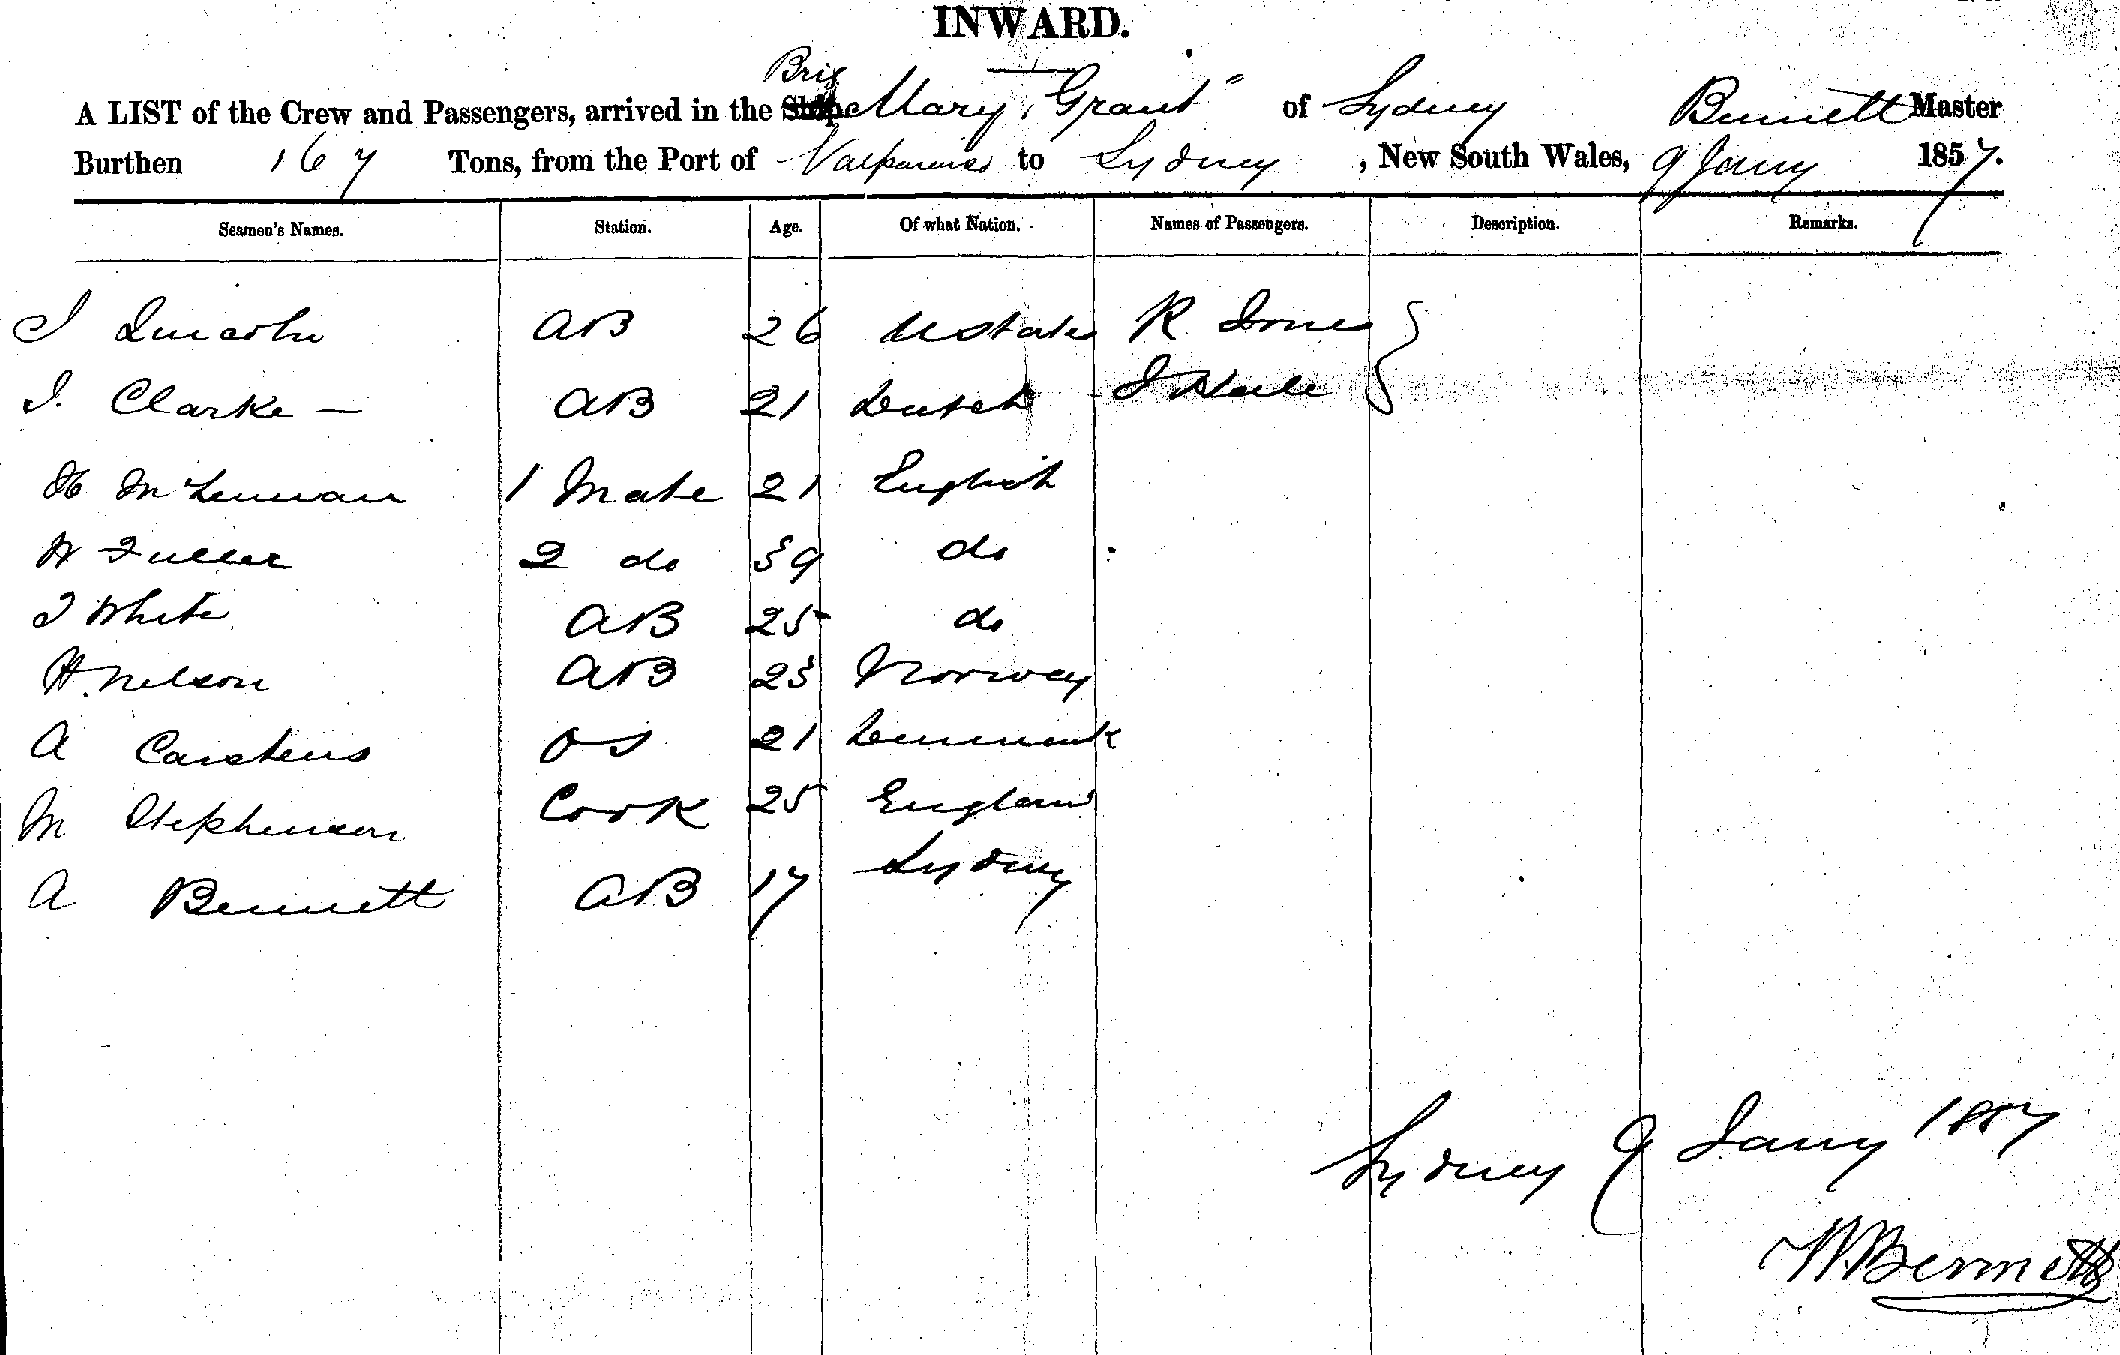 INWARD.
Brig
A LIST of the Crew and Passengers, arrived in the Ship "Mary Grant" of Sydney Bennett Master
Burthen 167 Tons, from the Port of Valparaiso to Sydney, New South Wales, 9 Jany 1857.
Seamen's Names. Station. Age. Of what Nation. Names of Passengers. Description. Remarks.
J Lincoln AB 26 U States R Jones
J. Clarke — AB 21 Dutch J
H McLennan 1 Mate 21 English
W Fuller 2 do 39 do
J White AB 25 do
H. Nelson AB 23 Norway
A Carstens OS 21 Denmark
M Stephenson Cook 25 England
A Bennett AB 17 Sydney
Sydney 9 Jany 1857
W Bennett